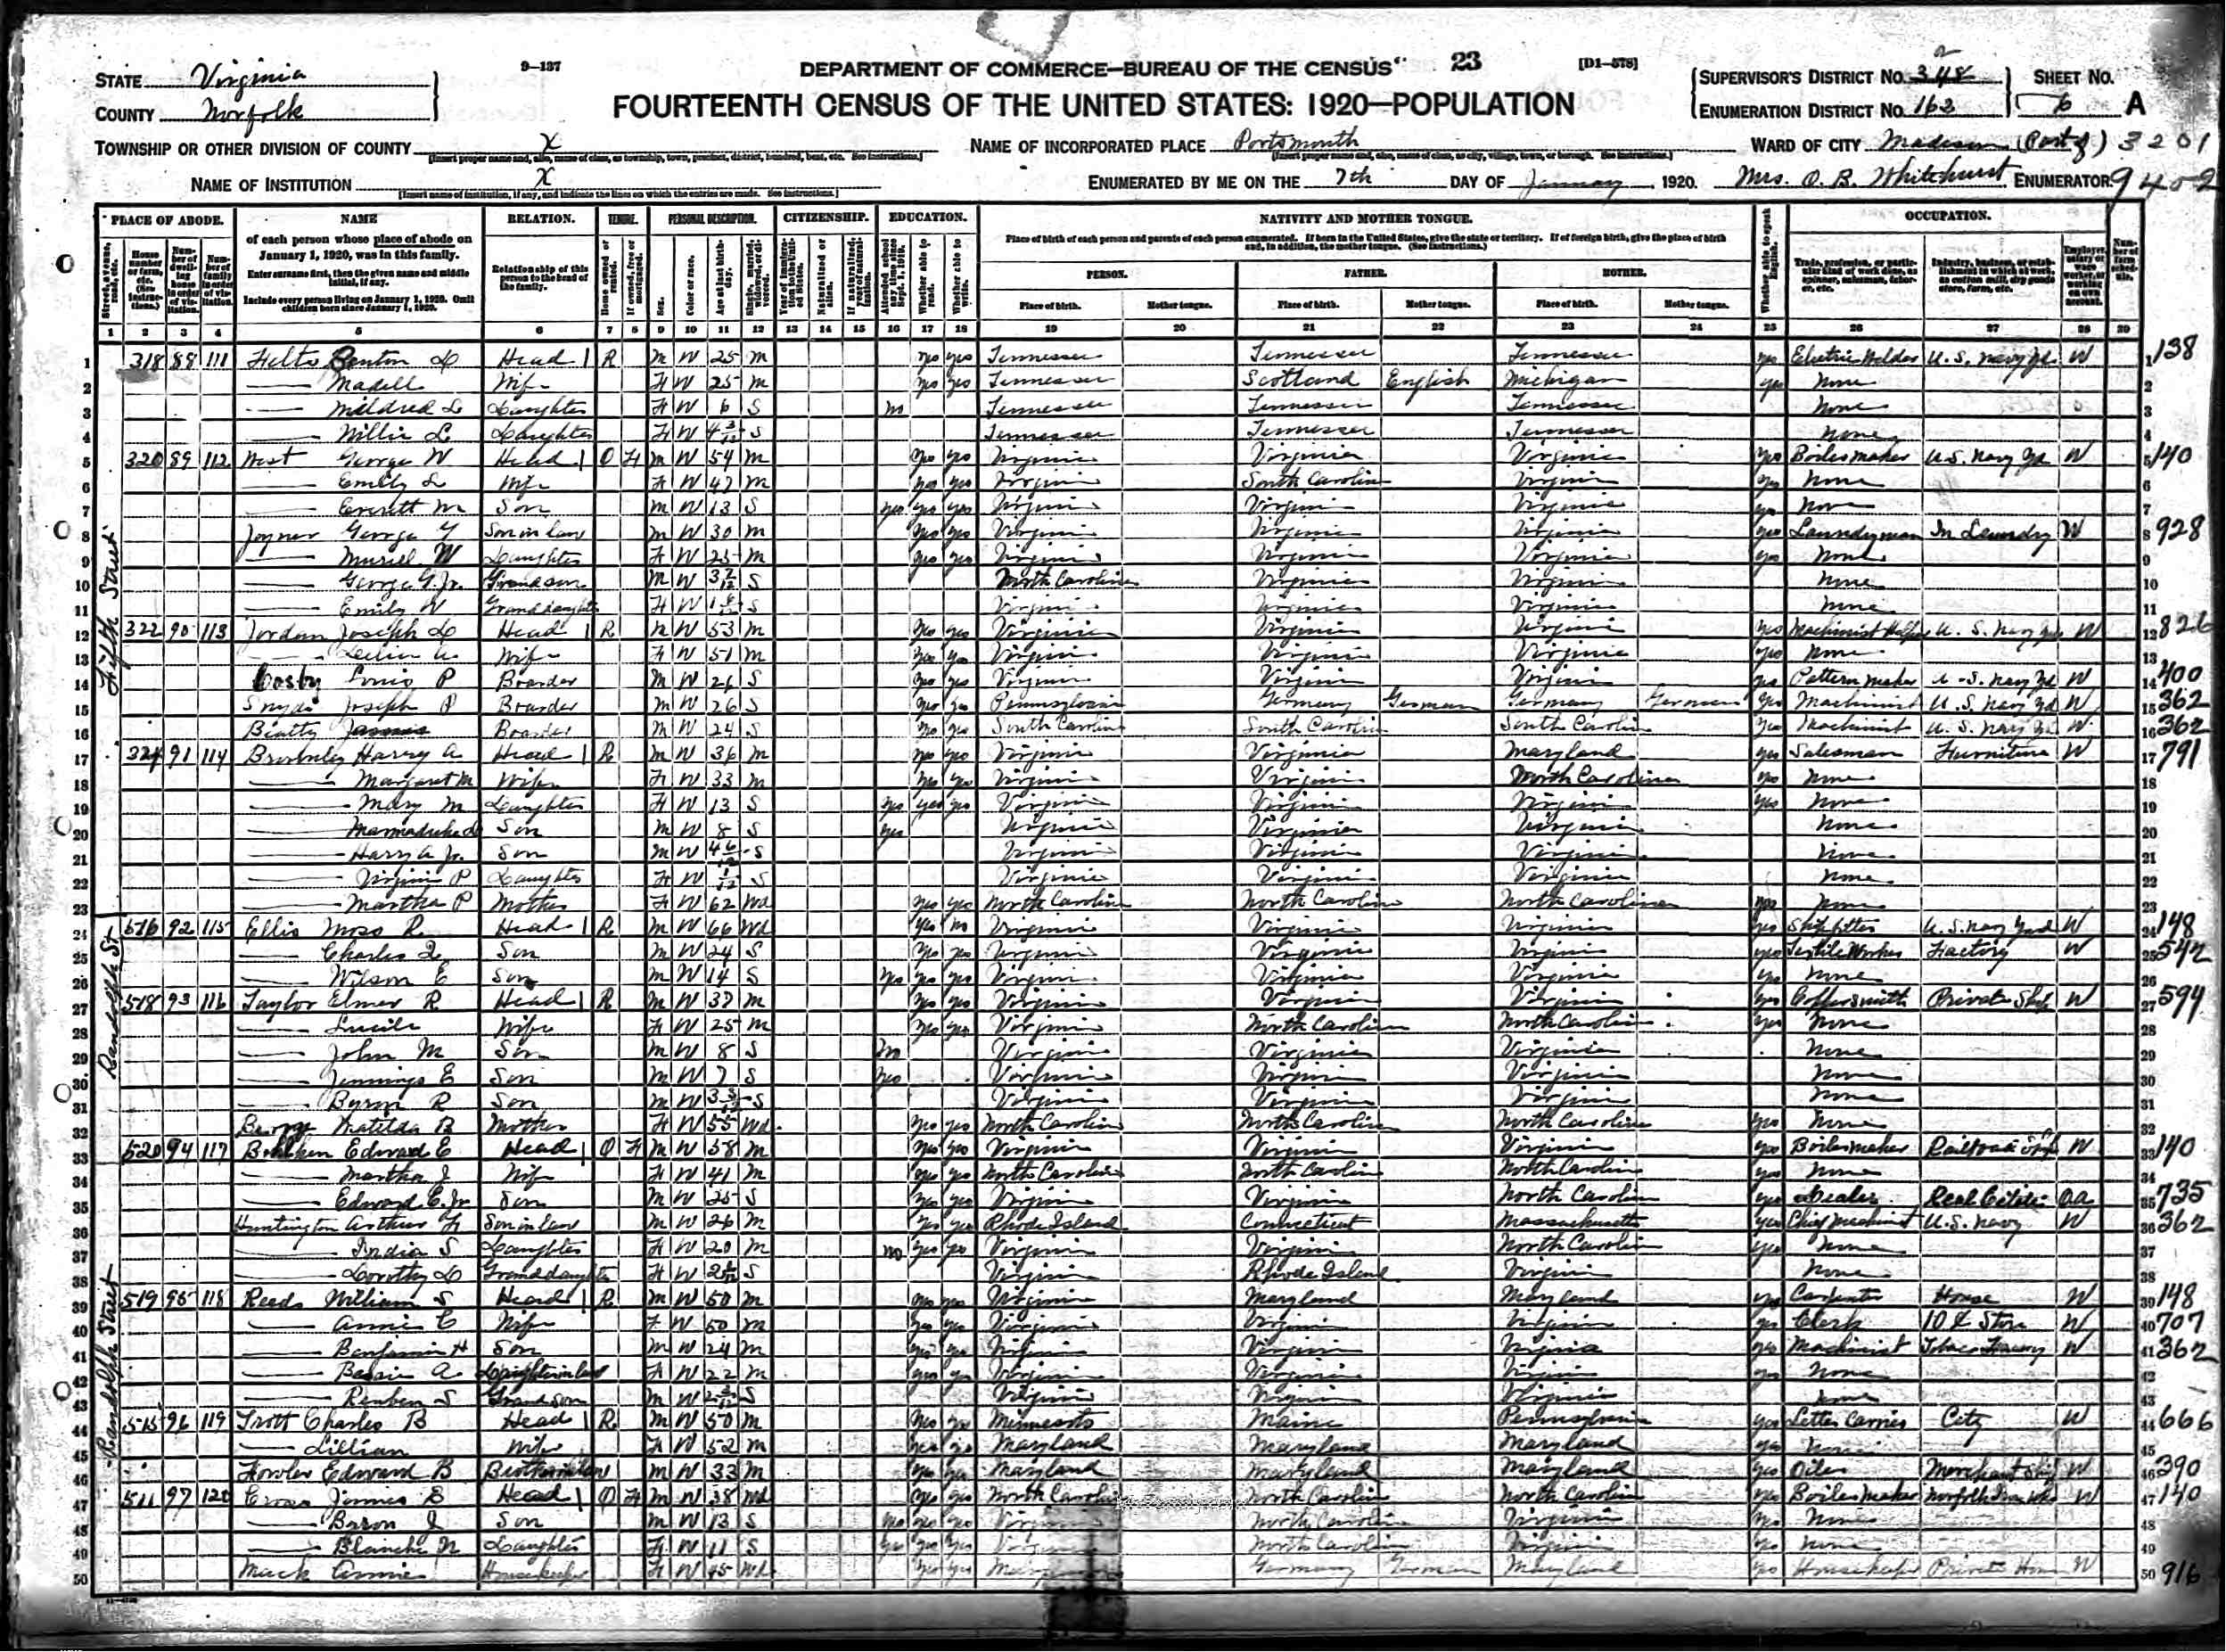 9-137 DEPARTMENT OF COMMERCE—BUREAU OF THE CENSUS 23 [D1-578]
STATE Virginia SUPERVISOR'S DISTRICT No. SHEET No.
COUNTY Norfolk FOURTEENTH CENSUS OF THE UNITED STATES: 1920—POPULATION ENUMERATION DISTRICT No. 163 6 A
TOWNSHIP OR OTHER DIVISION OF COUNTY X NAME OF INCORPORATED PLACE Portsmouth WARD OF CITY Madison (Part of) 3201
NAME OF INSTITUTION X ENUMERATED BY ME ON THE 7th DAY OF January, 1920. Mrs. O. B. Whitehurst ENUMERATOR. 9402
PLACE OF ABODE. NAME RELATION. TENURE. PERSONAL DESCRIPTION. CITIZENSHIP. EDUCATION. NATIVITY AND MOTHER TONGUE. OCCUPATION.
of each person whose place of abode on January 1, 1920, was in this family.
Enter surname first, then the given name and middle initial, if any.
Include every person living on January 1, 1920. Omit children born since January 1, 1920.
Relationship of this person to the head of the family.
Place of birth of each person and parents of each person enumerated. If born in the United States, give the state or territory. If of foreign birth, give the place of birth and, in addition, the mother tongue. (See Instructions.)
PERSON. FATHER. MOTHER.
Place of birth. Mother tongue. Place of birth. Mother tongue. Place of birth. Mother tongue.
1 2 3 4 5 6 7 8 9 10 11 12 13 14 15 16 17 18 19 20 21 22 23 24 25 26 27 28 29
Fifth Street
1 318 88 111 Felts Benton L Head 1 R M W 25 M yes yes Tennessee Tennessee Tennessee yes Electric Welder U.S. Navy Yd W 1 138
2 Madell Wife F W 25 M yes yes Tennessee Scotland English Michigan yes None 2
3 Mildred L Daughter F W 6 S no Tennessee Tennessee Tennessee None 3
4 Willie L Daughter F W S Tennessee Tennessee Tennessee None 4
5 320 89 112 West George W Head 1 O F M W 54 M yes yes Virginia Virginia Virginia yes Boilermaker U.S. Navy Yd W 5 140
6 Emily L Wife F W 47 M yes yes Virginia South Carolina Virginia yes None 6
7 Everett M Son M W 13 S yes yes yes Virginia Virginia Virginia yes None 7
8 Joyner George G Son in law M W 30 M yes yes Virginia Virginia Virginia yes Laundryman In Laundry W 8 928
9 Muriel W Daughter F W 25 M yes yes Virginia Virginia Virginia yes None 9
10 George G. Jr. Grandson M W S North Carolina Virginia Virginia None 10
11 Emily W Granddaughter F W S Virginia Virginia Virginia None 11
12 322 90 113 Jordan Joseph L Head 1 R M W 53 M yes yes Virginia Virginia Virginia yes Machinist Helper U.S. Navy Yd W 12 826
13 Wife F W 51 M yes yes Virginia Virginia Virginia yes None 13
14 Cosby Louis P Boarder M W 26 S yes yes Virginia Virginia Virginia yes Pattern maker U.S. Navy Yd W 14 400
15 Joseph P Boarder M W 26 S yes yes Pennsylvania Germany German Germany German yes Machinist U.S. Navy Yd W 15 362
16 Beatty James Boarder M W 24 S yes yes South Carolina South Carolina South Carolina yes Machinist U.S. Navy Yd W 16 362
17 324 91 114 Harry A Head 1 R M W 36 M yes yes Virginia Virginia Maryland yes Salesman Furniture W 17 791
18 Margaret M Wife F W 33 M yes yes Virginia Virginia North Carolina yes None 18
19 Mary M Daughter F W 13 S yes yes yes Virginia Virginia Virginia yes None 19
20 Marmaduke Son M W 8 S yes Virginia Virginia Virginia None 20
21 Harry A Jr. Son M W 4 6/12 S Virginia Virginia Virginia None 21
22 Virginia P Daughter F W 1/12 S Virginia Virginia Virginia None 22
23 Martha P Mother F W 62 Wd yes yes North Carolina North Carolina North Carolina yes None 23
Randolph St
24 516 92 115 Ellis Moss R Head 1 R M W 66 Wd yes no Virginia Virginia Virginia yes Shipfitter U.S. Navy Yard W 24 148
25 Charles Son M W 24 S yes yes Virginia Virginia Virginia yes Textile Worker Factory W 25 542
26 Wilson E Son M W 14 S yes yes yes Virginia Virginia Virginia yes None 26
27 518 93 116 Taylor Elmer R Head 1 R M W M yes yes Virginia Virginia Virginia yes Coppersmith Private Shop W 27 594
28 Lucile Wife F W 25 M yes yes Virginia North Carolina North Carolina yes None 28
29 John M Son M W 8 S Virginia Virginia Virginia None 29
30 Jennings E Son M W 7 S yes Virginia Virginia Virginia None 30
31 Byron R Son M W S Virginia Virginia Virginia None 31
32 Matilda B Mother F W 55 Wd yes yes North Carolina North Carolina North Carolina yes None 32
33 520 94 117 Edward E Head 1 O F M W 58 M yes yes Virginia Virginia Virginia yes Boilermaker Railroad Shop W 33 140
34 Martha J Wife F W 41 M yes yes North Carolina North Carolina North Carolina yes None 34
35 Edward E. Jr Son M W 25 S yes yes Virginia Virginia North Carolina yes Dealer Real Estate OA 35 735
36 Huntington Arthur Son in law M W 26 M yes yes Rhode Island Connecticut Massachusetts yes Chief Machinist U.S. Navy W 36 362
37 India S Daughter F W 20 M no yes yes Virginia Virginia North Carolina yes None 37
38 Dorothy L Granddaughter F W S Virginia Rhode Island Virginia None 38
Randolph Street
39 519 95 118 Reeds William S Head 1 R M W 50 M yes yes Virginia Maryland Maryland yes Carpenter House W 39 148
40 Annie C Wife F W 50 M yes yes Virginia Virginia Virginia yes Clerk 10 ¢ Store W 40 707
41 Benjamin H Son M W 24 M yes yes Virginia Virginia Virginia yes Machinist W 41 362
42 Bessie A Daughter in law F W 22 M yes yes Virginia Virginia Virginia yes None 42
43 Reuben S Grandson M W S Virginia Virginia Virginia None 43
44 515 96 119 Trott Charles B Head 1 R M W 50 M yes yes Minnesota Maine Pennsylvania yes Letter Carrier City W 44 666
45 Lillian Wife F W 52 M Maryland Maryland Maryland yes None 45
46 Fowler Edward B Brother in law M W 33 M yes yes Maryland Maryland Maryland yes Oiler Merchant Ship W 46 390
47 511 97 120 Cross Head 1 O F M W 38 Wd yes yes North Carolina North Carolina North Carolina yes Boilermaker Norfolk W 47 140
48 Byron J Son M W 13 S yes yes yes Virginia North Carolina Virginia yes None 48
49 Blanche N Daughter F W 11 S yes yes yes North Carolina Virginia yes None 49
50 Mack Annie Housekeeper F W 45 Wd yes yes Germany German Maryland yes Housekeeper Private Home W 50 916